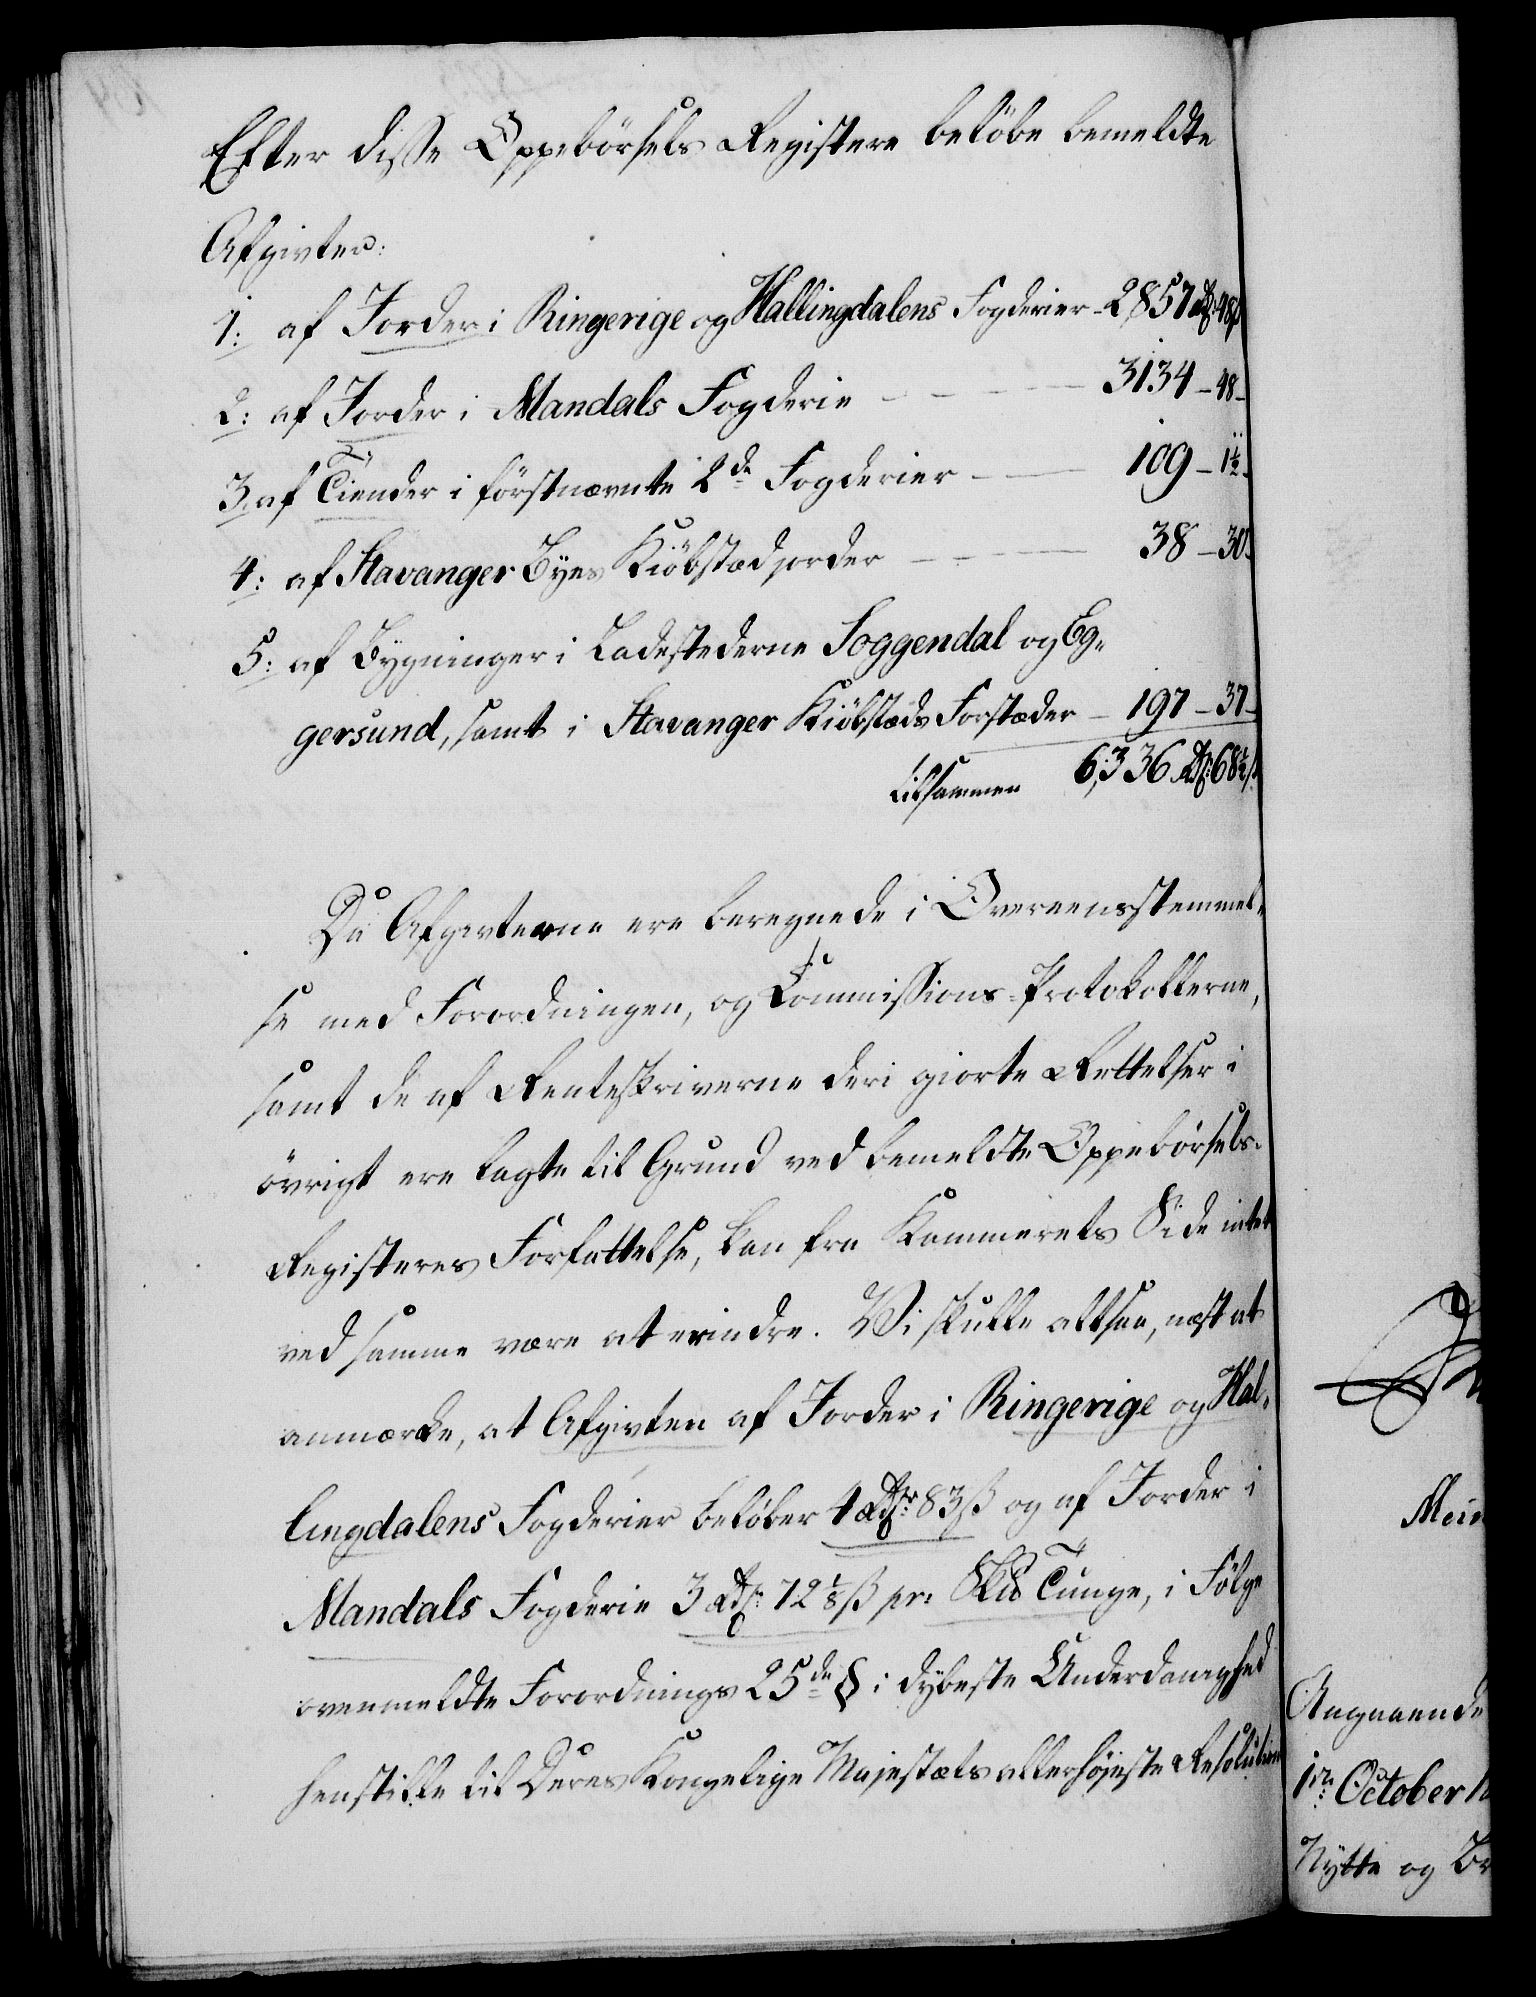 Efter disse Oppebörsels Registere belöbe bemeldte
Afgivter:
1: af Jorder i Ringerige og Hallingdalens Fogderier - 2857 Rdr 48ß
2: af Jorder i Mandals Fogderie - - - 3134 - 48 -
3. af Tiender i förstnævnte 2de Fogderier - - 109 - 1½ -
4: af Stavanger Byes Kiöbstædjorder - - - 38 - 30 -
5: af Bygninger i Ladestederne Soggendal og Eg-
gersund, samt i Stavanger Kiöbstæds Forstæder - 197 - 37 -
tilsammen 6,336 Rdr 68½ß
Da Afgivterne ere beregnede i Overeensstemmel-
se med Forordningen, og Commissions-Protokollerne,
samt de af Renteskriverne deri giorte Rettelser i
övrigt ere lagte til Grund ved bemeldte Oppebörsels-
Registeres Forfattelse, kan fra Kammerets Side intet
ved samme være at erindre. Vi skulle altsaa, næst at
anmærke, at Afgivten af Jorder i Ringerige og Hal-
lingdalens Fogderier belöber 4 Rdr 83ß og af Jorder i
Mandals Fogderie 3 Rdr 72⅛ß pr: Skd Tunge, i Fölge
ovenmeldte Forordnings 25de § i dybeste Underdanighed
henstille til Deres Kongelige Majestæts allerhöjeste Resolution
Angaaende
October
Nytte og